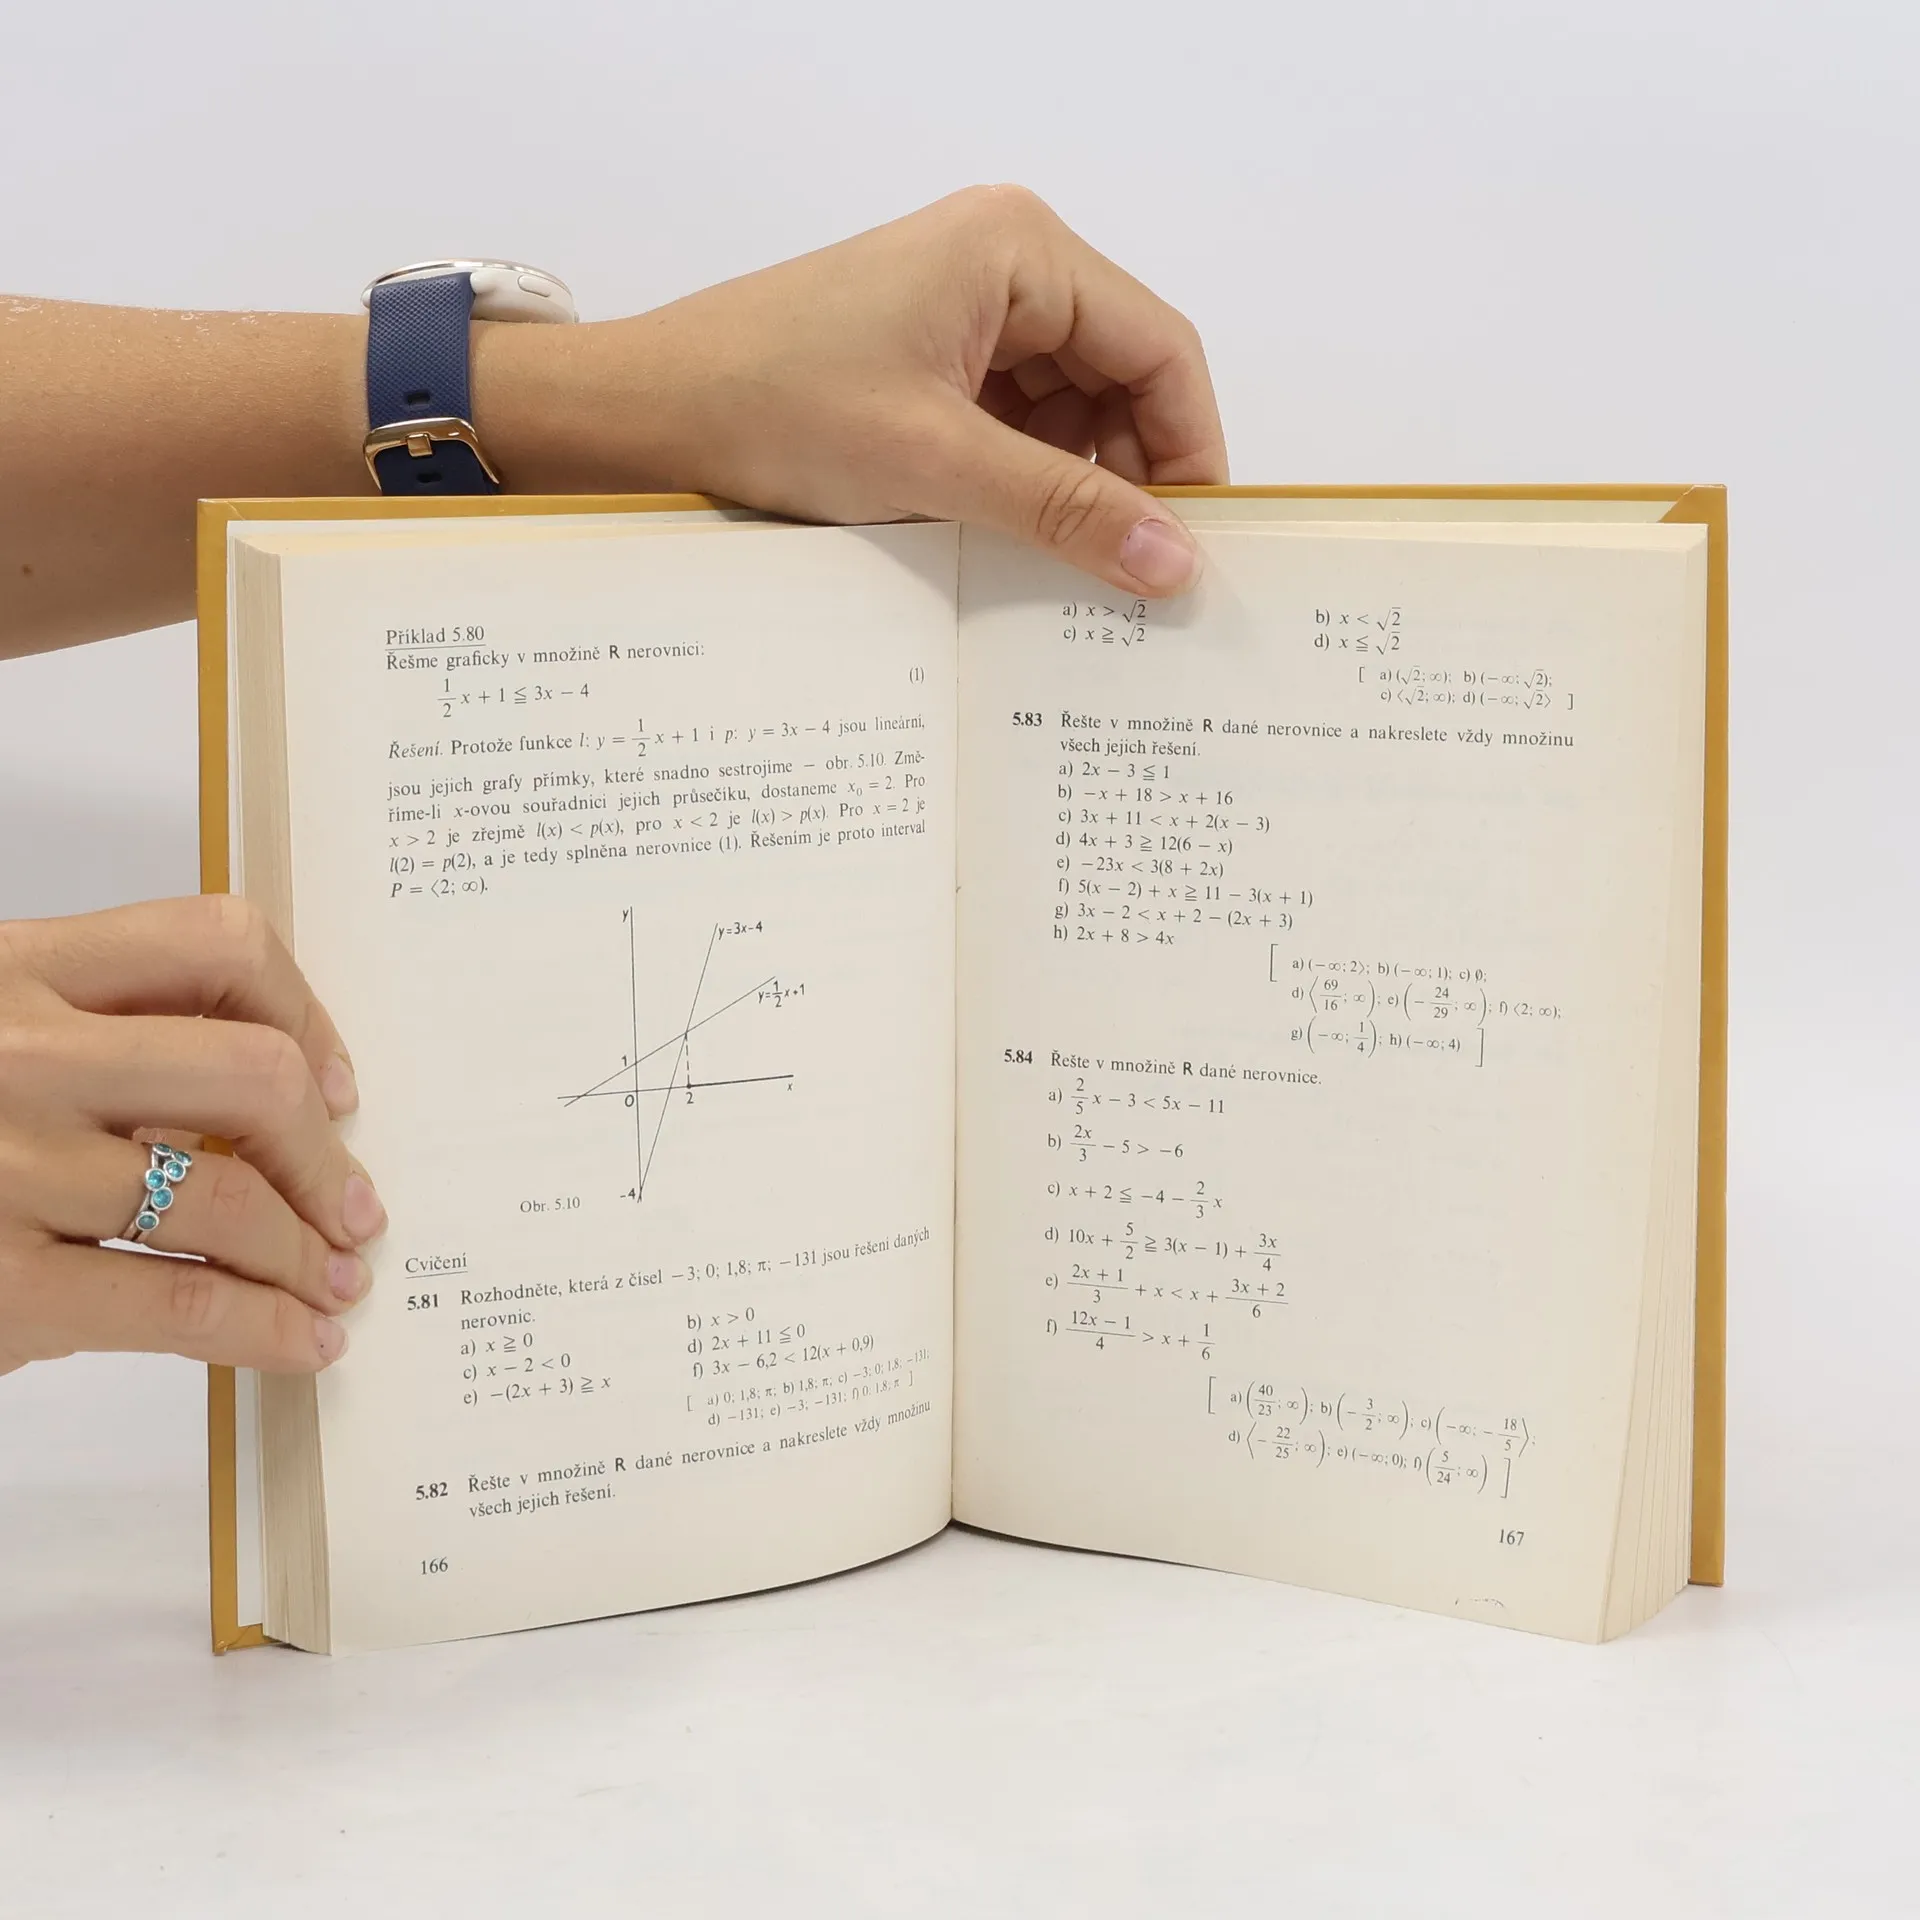 Příklad 5.80
Řešme graficky v množině R nerovnici:
1/2 x + 1 ≦ 3x − 4 (1)
Řešení. Protože funkce l: y = 1/2 x + 1 i p: y = 3x − 4 jsou lineární,
jsou jejich grafy přímky, které snadno sestrojíme − obr. 5.10. Změ-
říme-li x-ovou souřadnici jejich průsečíku, dostaneme x₀ = 2. Pro
x > 2 je zřejmě l(x) < p(x), pro x < 2 je l(x) > p(x). Pro x = 2 je
l(2) = p(2), a je tedy splněna nerovnice (1). Řešením je proto interval
P = ⟨2; ∞).
y
y=3x-4
y=1/2 x+1
1
0
2
x
-4
Obr. 5.10
Cvičení
5.81 Rozhodněte, která z čísel −3; 0; 1,8; π; −131 jsou řešení daných
nerovnic.
a) x ≧ 0 b) x > 0
c) x − 2 < 0 d) 2x + 11 ≦ 0
e) −(2x + 3) ≧ x f) 3x − 6,2 < 12(x + 0,9)
[ a) 0; 1,8; π; b) 1,8; π; c) −3; 0; 1,8; −131;
d) −131; e) −3; −131; f) 0; 1,8; π ]
5.82 Řešte v množině R dané nerovnice a nakreslete vždy množinu
všech jejich řešení.
166
a) x > √2 b) x < √2
c) x ≧ √2 d) x ≦ √2
[ a) (√2; ∞); b) (−∞; √2);
c) ⟨√2; ∞); d) (−∞; √2⟩ ]
5.83 Řešte v množině R dané nerovnice a nakreslete vždy množinu
všech jejich řešení.
a) 2x − 3 ≦ 1
b) −x + 18 > x + 16
c) 3x + 11 < x + 2(x − 3)
d) 4x + 3 ≧ 12(6 − x)
e) −23x < 3(8 + 2x)
f) 5(x − 2) + x ≧ 11 − 3(x + 1)
g) 3x − 2 < x + 2 − (2x + 3)
h) 2x + 8 > 4x
[ a) (−∞; 2⟩; b) (−∞; 1); c) ∅;
d) ⟨69/16; ∞); e) (−24/29; ∞); f) ⟨2; ∞);
g) (−∞; 1/4); h) (−∞; 4) ]
5.84 Řešte v množině R dané nerovnice.
a) 2/5 x − 3 < 5x − 11
b) 2x/3 − 5 > −6
c) x + 2 ≦ −4 − 2/3 x
d) 10x + 5/2 ≧ 3(x − 1) + 3x/4
e) (2x + 1)/3 + x < x + (3x + 2)/6
f) (12x − 1)/4 > x + 1/6
[ a) (40/23; ∞); b) (−3/2; ∞); c) (−∞; −18/5⟩;
d) ⟨−22/25; ∞); e) (−∞; 0); f) (5/24; ∞) ]
167